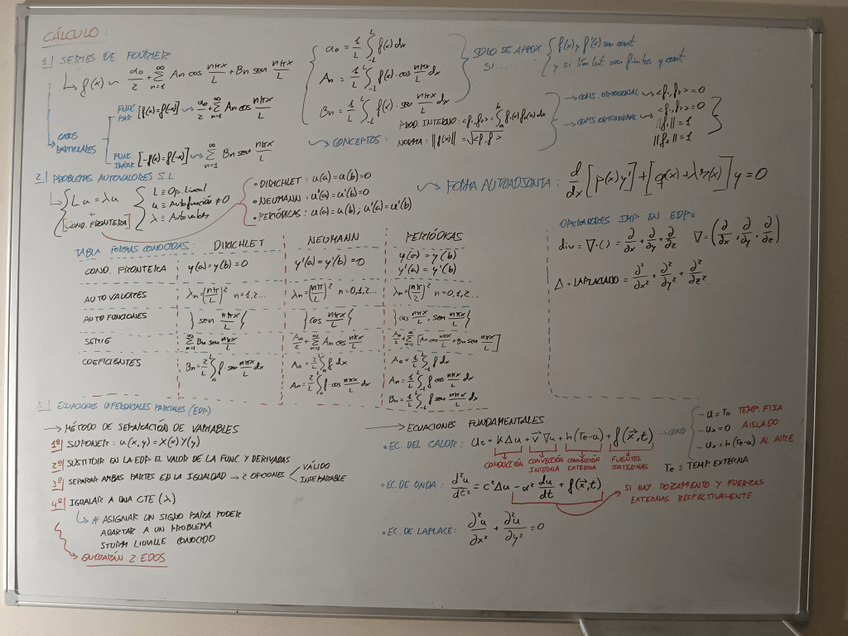 CÁLCULO:
1) SERIES DE FOURIER
↳ f(x) ~ a₀/2 + ∑_{n=1}^{∞} An cos nπx/L + Bn sen nπx/L
a₀ = 1/L ∫_{-L}^{L} f(x) dx
An = 1/L ∫_{-L}^{L} f(x) · cos nπx/L dx
Bn = 1/L ∫_{-L}^{L} f(x) sen nπx/L dx
SOLO SE APROX. SI...
f(x) y f'(x) son cont
y si lim lat son finitos y cont
CASOS PARTICULARES
FUNC. PAR [f(x)=f(-x)] ↝ a₀/2 + ∑_{n=1}^{∞} An cos nπx/L
FUNC. IMPAR [-f(x)=f(-x)] ↝ ∑_{n=1}^{∞} Bn sen nπx/L
↝ CONCEPTOS:
PROD. INTERNO: <f₁, f₂> = ∫_a^b f₁(x) f₂(x) dx
NORMA: ||f(x)|| = √<f, f>
→ CONJ. ORTOGONAL ↝ <f₁, f₂> = 0
→ CONJ. ORTONORMAL ↝ <f₁, f₂> = 0
||f₁|| = 1
||f₂|| = 1
2) PROBLEMAS AUTOVALORES S.L
Lu = λu
+
[COND. FRONTERA]
L ≡ Op. lineal
u ≡ Autofunción ≠ 0
λ ≡ Autovalores
• DIRICHLET: u(a) = u(b) = 0
• NEUMANN: u'(a) = u'(b) = 0
• PERIÓDICAS: u(a) = u(b); u'(a) = u'(b)
↝ FORMA AUTOADJUNTA: d/dx [p(x) y'] + [q(x) + λr(x)] y = 0
TABLA FORMAS CONOCIDAS: DIRICHLET NEUMANN PERIÓDICAS
COND. FRONTERA y(a) = y(b) = 0 y'(a) = y'(b) = 0 y(a) = y(b)
y'(a) = y'(b)
AUTOVALORES λn = (nπ/L)² n=1,2... λn = (nπ/L)² n=0,1,2... λn = (nπ/L)² n=0,1,2...
AUTOFUNCIONES {sen nπx/L} {cos nπx/L} {cos nπx/L, sen nπx/L}
SERIE ∑_{n=1}^{∞} Bn sen nπx/L A₀/2 + ∑_{n=1}^{∞} An cos nπx/L A₀/2 + ∑_{n=1}^{∞} [An cos nπx/L + Bn sen nπx/L]
COEFICIENTES Bn = 2/L ∫_0^L f · sen nπx/L dx A₀ = 2/L ∫_0^L f dx A₀ = 1/L ∫_{-L}^{L} f dx
An = 2/L ∫_0^L f · cos nπx/L dx An = 1/L ∫_{-L}^{L} f cos nπx/L dx
Bn = 1/L ∫_{-L}^{L} f sen nπx/L dx
OPERADORES IMP EN EDPs
div = ∇·( ) = ∂/∂x + ∂/∂y + ∂/∂z ∇ = (∂/∂x, ∂/∂y, ∂/∂z)
Δ = LAPLACIANO = ∂²/∂x² + ∂²/∂y² + ∂²/∂z²
3) ECUACIONES DIFERENCIALES PARCIALES (EDP)
→ MÉTODO DE SEPARACIÓN DE VARIABLES
1º SUPONER: u(x,y) = X(x) Y(y)
2º SUSTITUIR EN LA EDP EL VALOR DE LA FUNC. Y DERIVADAS
3º SEPARAR AMBAS PARTES EN LA IGUALDAD → 2 OPCIONES
VÁLIDO
INSEPARABLE
4º IGUALAR A UNA CTE (λ)
↳ # ASIGNAR UN SIGNO PARA PODER
ADAPTAR A UN PROBLEMA
STURM LIOUVILLE CONOCIDO
QUEDARÁN 2 EDOS
→ ECUACIONES FUNDAMENTALES
• EC. DEL CALOR: Ut = kΔu + v⃗ ∇u + h(Te-u) + f(x⃗,t)
CONDUCCIÓN CONVECCIÓN INTERNA CONVECCIÓN EXTERNA FUENTES INTERNAS
- u = T₀ TEMP. FIJA
- Ux = 0 AISLADO
- Ux = h(Te-u) AL AIRE
Te ≡ TEMP. EXTERNA
• EC. DE ONDA: d²u/dt² = c²Δu - α² du/dt + f(x⃗,t)
SI HAY ROZAMIENTO Y FUERZAS
EXTERNAS RESPECTIVAMENTE
• EC. DE LAPLACE: ∂²u/∂x² + ∂²u/∂y² = 0